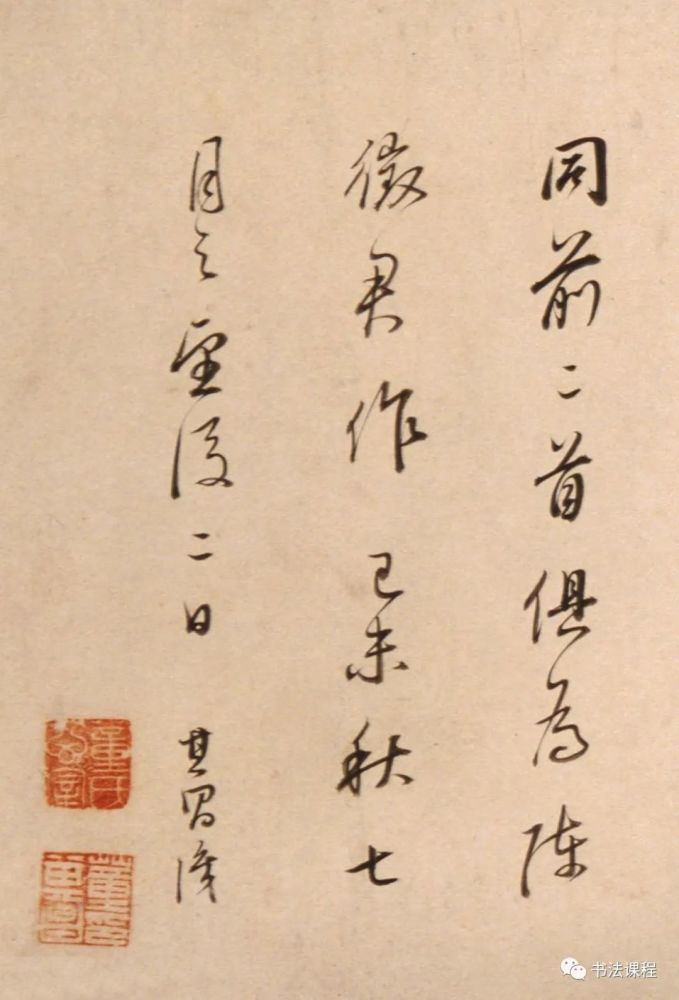 同前二首俱為陳
徵君作己未秋七
月之望後二日 其昌識
书法课程